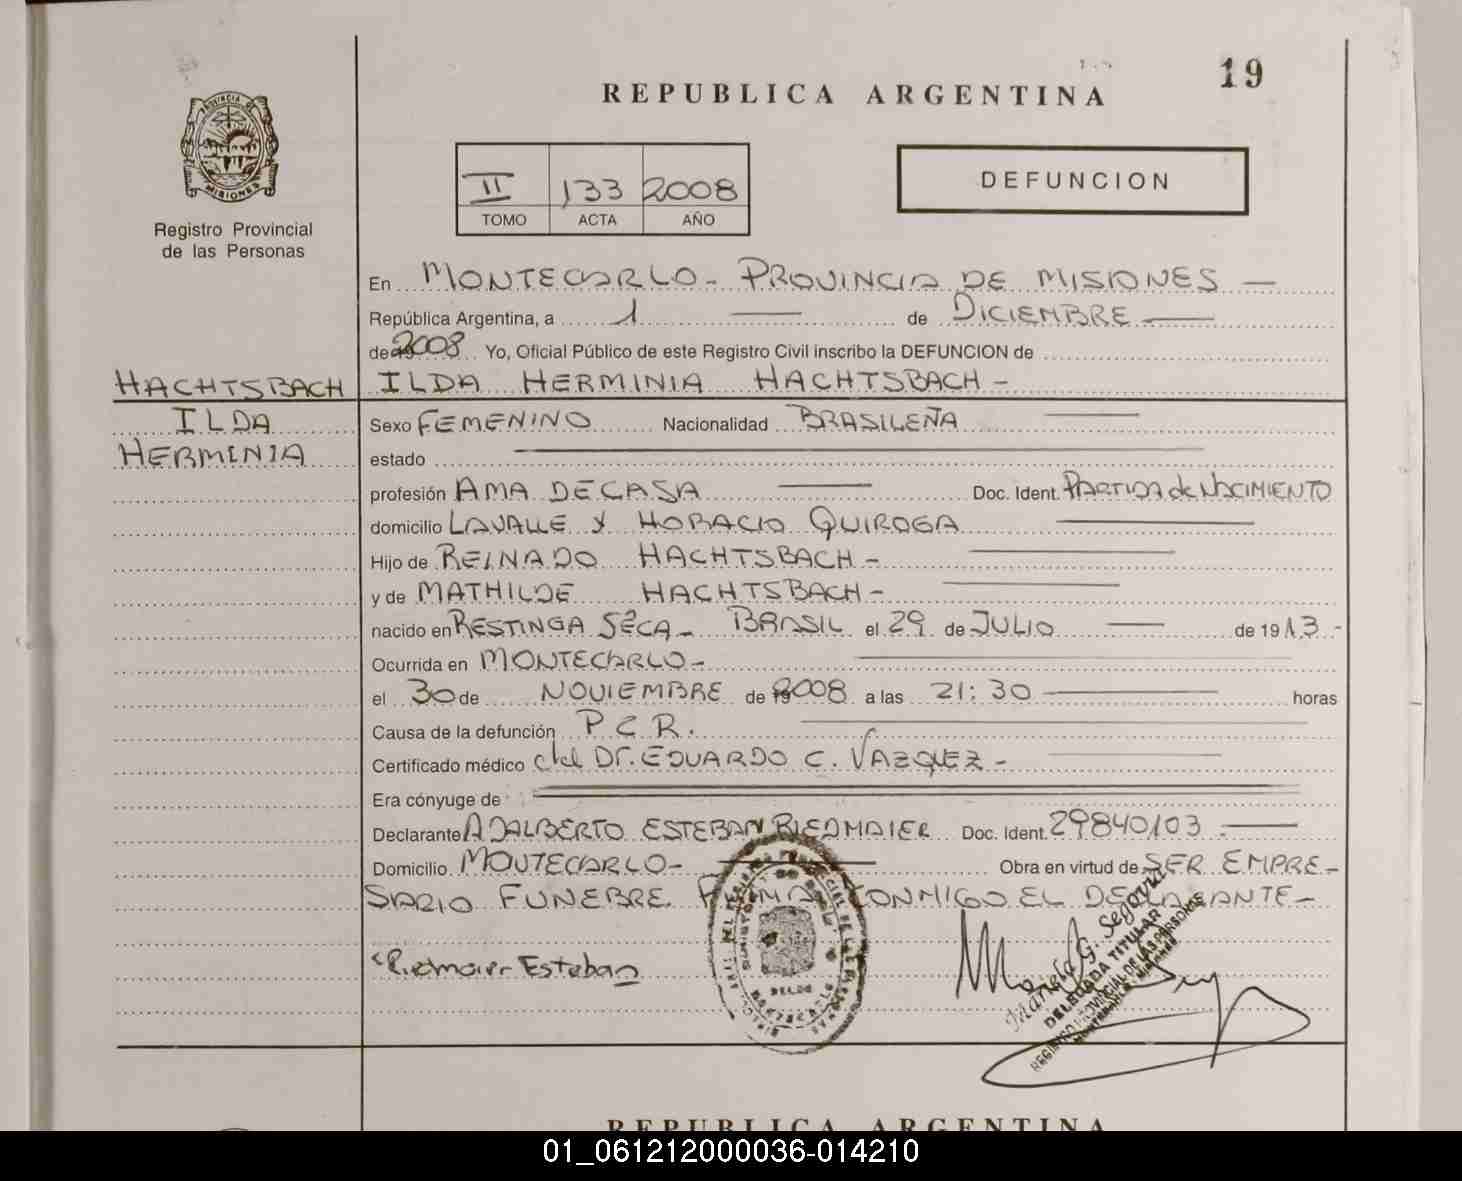 19
REPUBLICA ARGENTINA
PROVINCIA DE
MISIONES
Registro Provincial
de las Personas
II 133 2008
TOMO ACTA AÑO
DEFUNCION
En MONTECARLO - PROVINCIA DE MISIONES —
República Argentina, a 1 — de DICIEMBRE —
de 2008 Yo, Oficial Público de este Registro Civil inscribo la DEFUNCION de
HACHTSBACH
ILDA
HERMINIA
ILDA HERMINIA HACHTSBACH -
Sexo FEMENINO Nacionalidad BRASILEÑA —
estado —
profesión AMA DE CASA — Doc. Ident. PARTIDA de NACIMIENTO
domicilio LAVALLE Y HORACIO QUIROGA —
Hijo de REINADO HACHTSBACH - —
y de MATHILDE HACHTSBACH - —
nacido en RESTINGA SÊCA - BRASIL el 29 de JULIO — de 1913 -
Ocurrida en MONTECARLO - —
el 30 de NOVIEMBRE de 2008 a las 21:30 — horas
Causa de la defunción P C R. —
Certificado médico del DR. EDUARDO C. VAZQUEZ - —
Era cónyuge de —
Declarante ADALBERTO ESTEBAN RIEDMAIER Doc. Ident. 29840103 —
Domicilio MONTECARLO - — Obra en virtud de SER EMPRE-
SARIO FUNEBRE. FIRMA CONMIGO EL DECLARANTE -
Riedmaier Esteban
Mariela G. Segovia
DELEGADA TITULAR
REGISTRO PROVINCIAL DE LAS PERSONAS
REPUBLICA ARGENTINA
01_061212000036-014210